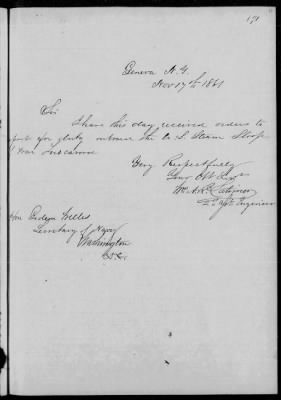 171
Geneva N.Y.
Nov 17th 1861
Sir
I have this day received orders to
for duty on board the U.S. Steam Sloop
"Tuscarora
Very Respectfully
Your Obt Servt
Wm
Engineer
Hon Gideon Welles
Secretary of Navy
Washington
D.C.